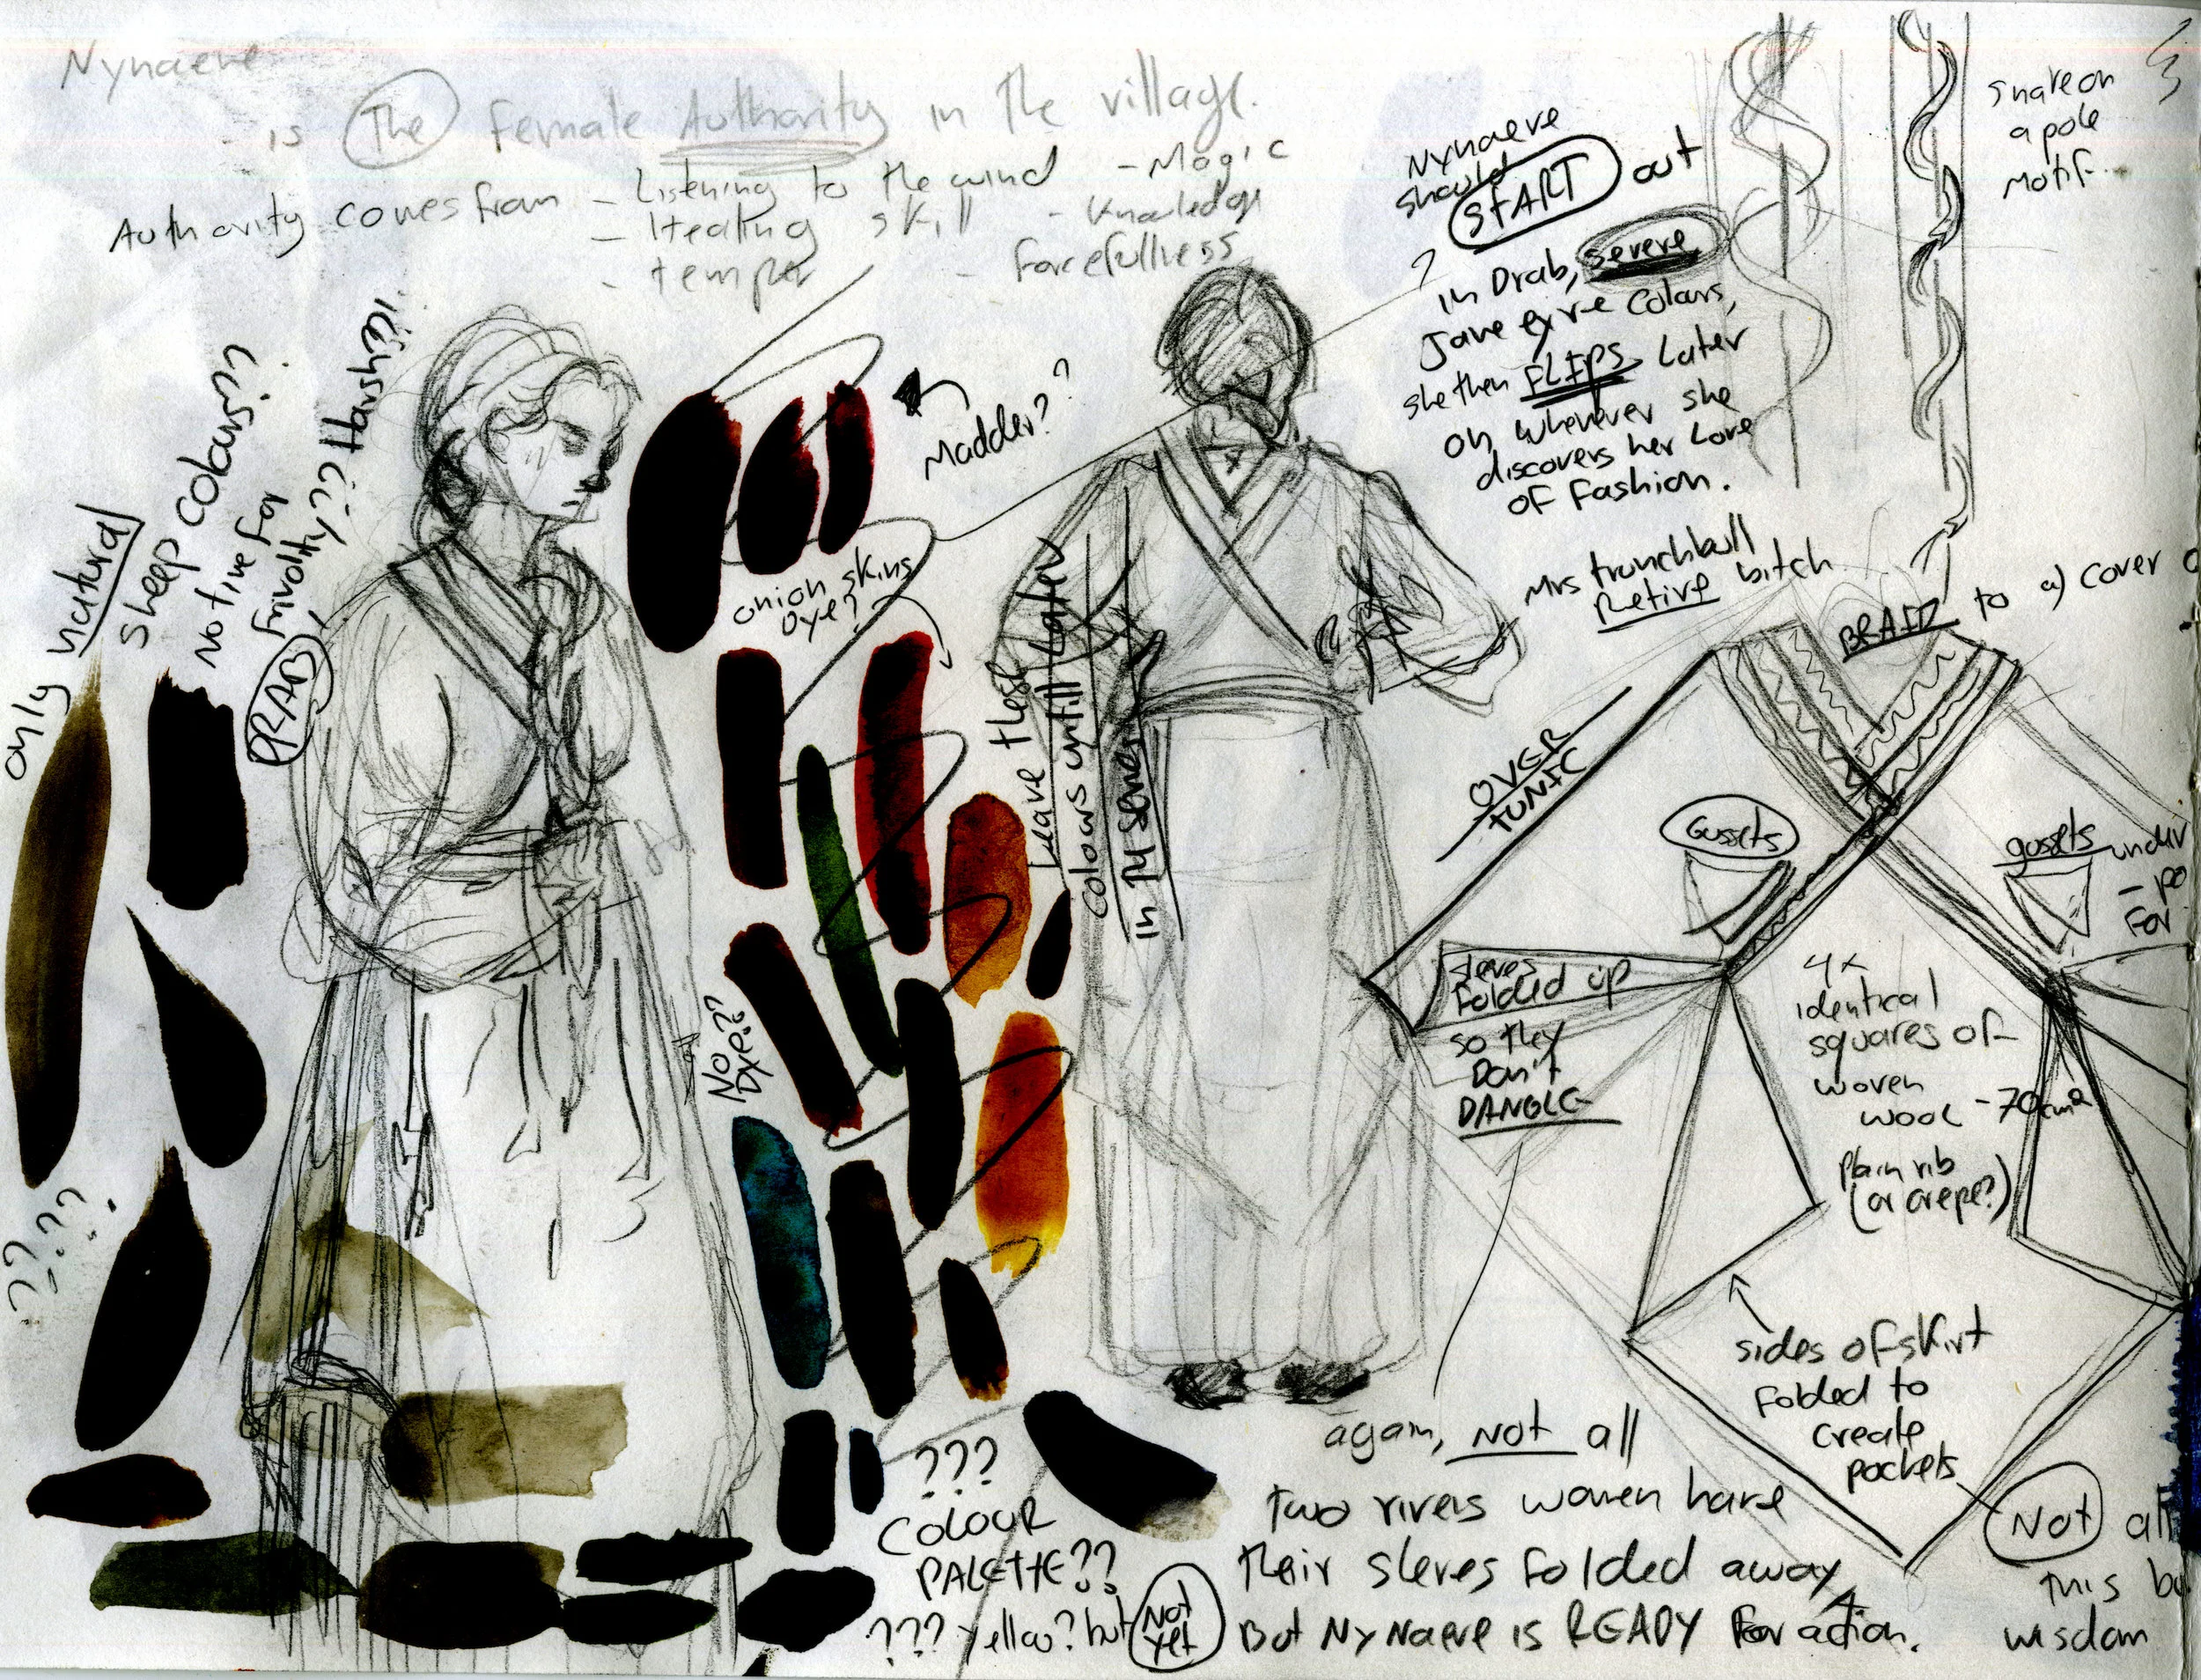 Nynaeve
is The female Authority in the village.
Authority comes from - Listening to the wind - Magic
- Healing skill - Knowledge
- temper - forcefullness
only natural
sheep colours??
No time for
frivolity?? Harsh??!
DRAB
????
Madder??
onion skins
Dye?
Leave these
colours untill Later
in TV series
No
Dye??
???
COLOUR
PALETTE??
??? Yellow? but Not
Yet
Nynaeve
should
START out
in Drab, severe
Jane eyre Colours,
she then FLIPS Later
on, whenever she
discovers her Love
of Fashion.
Snake on
a pole
Motif..
Mrs trunchbull
Retire bitch
BRAID to a) cover
OVER
TUNIC
Gussets
gussets under
- po
For
sleves
Folded up
so they
Don't
DANGLE
4x
identical
squares of
woven
wool - 70cm²
plain rib
(or crepe?)
sides of skirt
Folded to
create
pockets
Not all
this bu
wisdom
again, Not all
two rivers women have
their sleves folded away
But Nynaeve is READY For action.